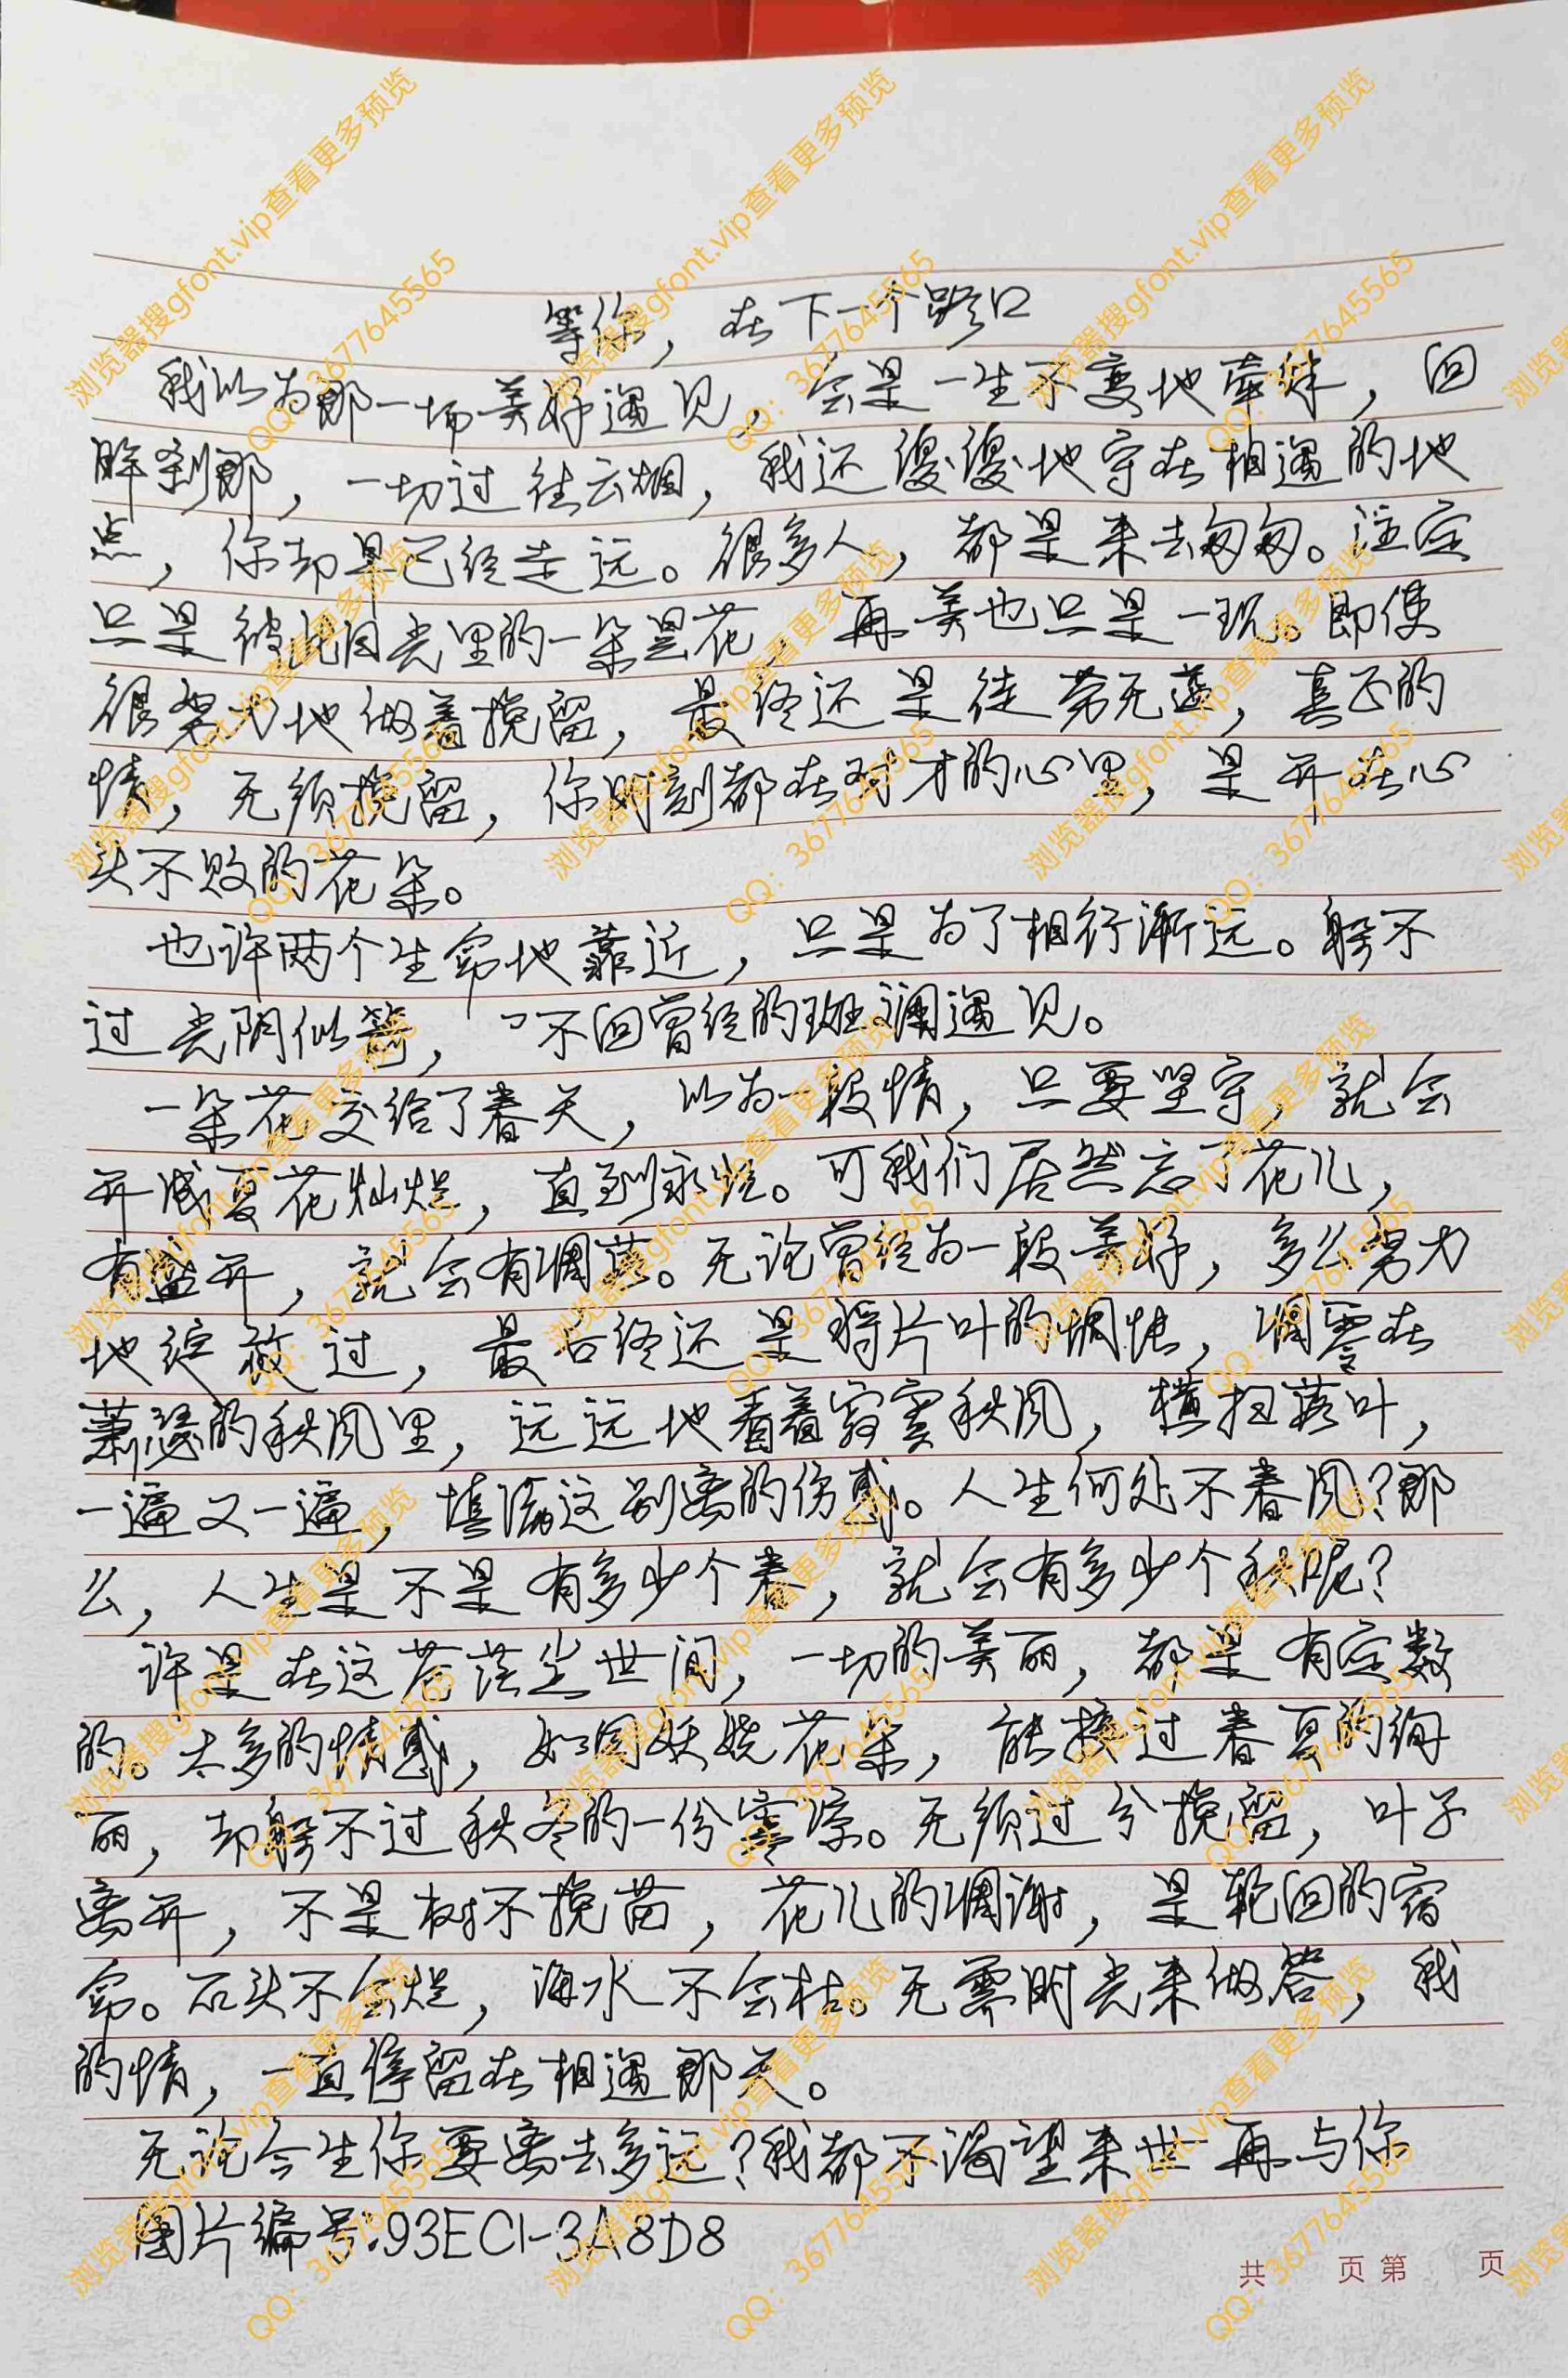 等你，在下一个路口
我以为那一场美好遇见，会是一生不变地牵绊，回
眸刹那，一切过往云烟，我还傻傻地守在相遇的地
点，你却早已经走远。很多人，都是来去匆匆。注定
只是彼此目光里的一朵昙花，再美也只是一现。即使
很努力地做着挽留，最终还是徒劳无益，真正的
情，无须挽留，你时刻都在对方的心里，是开在心
头不败的花朵。
也许两个生命地靠近，只是为了相行渐远。躲不
过光阴似箭，不回曾经的斑斓遇见。
一朵花交给了春天，以为一段情，只要坚守，就会
开成夏花灿烂，直到永远。可我们居然忘了花儿，
有盛开，就会有凋落。无论曾经为一段美好，多么努力
地绽放过，最后终还是将片叶的惆怅，凋零在
萧瑟的秋风里，远远地看着寂寞秋风，横扫落叶，
一遍又一遍，填满这别离的伤感。人生何处不春风？那
么，人生是不是有多少个春，就会有多少个秋呢？
许是在这苍茫尘世间，一切的美丽，都是有定数
的。太多的情感，如同妖娆花朵，能挨过春夏的绚
丽，却躲不过秋冬的一份寒凉。无须过分挽留，叶子
离开，不是树不挽留，花儿的凋谢，是轮回的宿
命。石头不会烂，海水不会枯。无需时光来做答，我
的情，一直停留在相遇那天。
无论今生你要离去多远？我都不渴望来世再与你
图片编号:93EC1-3A8D8
共 页 第 页
浏览器搜gfont.vip查看更多预览
QQ：3677645565